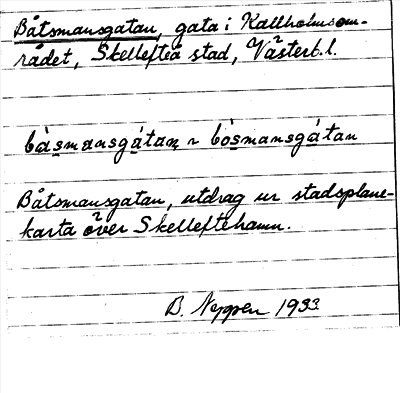 Båtsmansgatan, gata i Kallholmsom-
rådet, Skellefteå stad, Västerb.l.
bàsmansgátan ~ bòsmansgátan
Båtsmansgatan, utdrag ur stadsplane-
karta över Skelleftehamn.
B. 1933